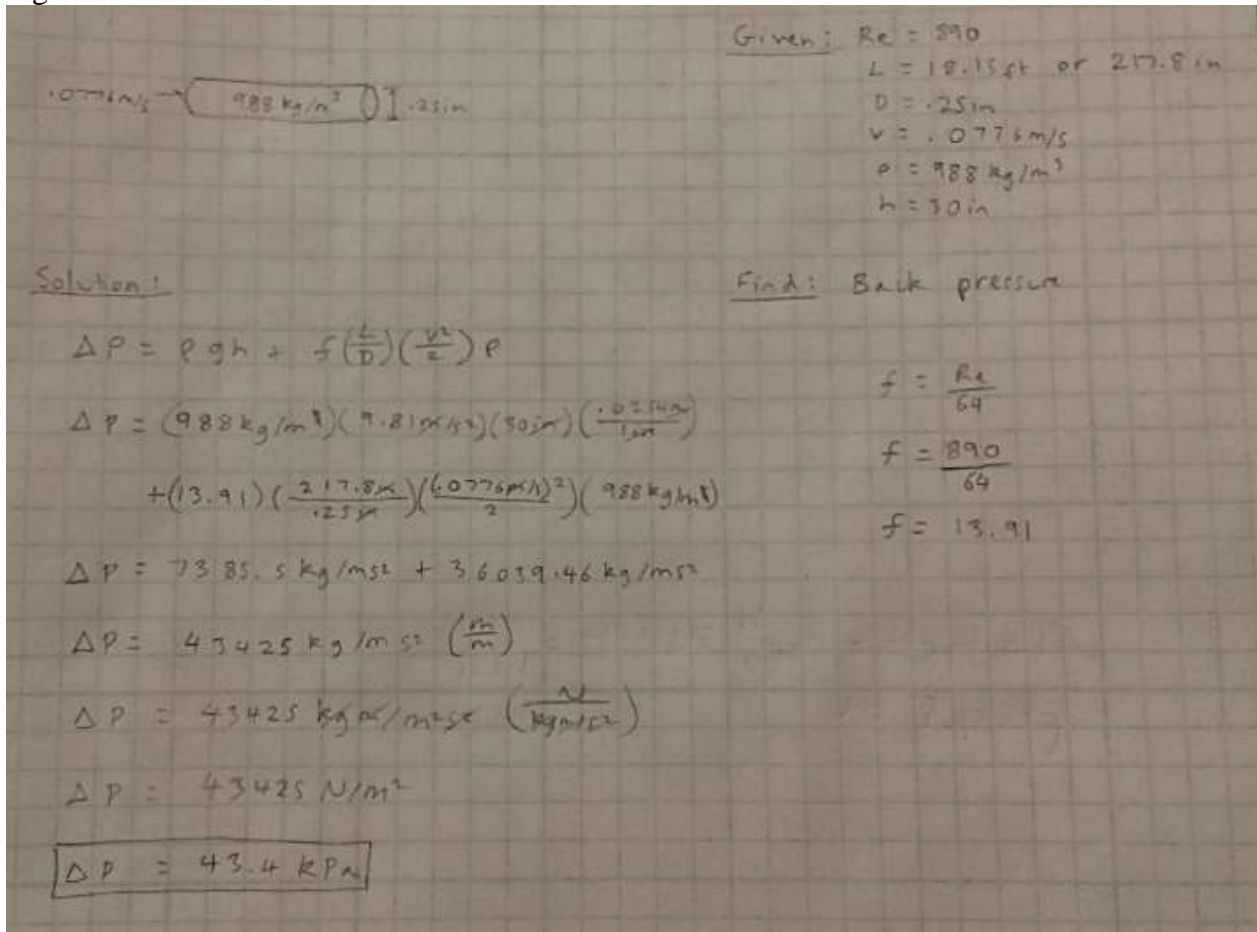 Given: Re = 890
L = 18.15ft or 217.8in
D = .25in
v = .0776m/s
ρ = 988 kg/m³
h = 30in
.0776m/s → 988 kg/m³ .25in
Solution:
Find: Back pressure
ΔP = ρgh + f(L/D)(v²/2)ρ
ΔP = (988kg/m³)(9.81m/s²)(30in)(.0254m/1in)
+(13.91)(217.8in/.25in)((.0776m/s)²/2)(988kg/m³)
ΔP = 7385.5 kg/ms² + 36039.46 kg/ms²
ΔP = 43425 kg/ms² (m/m)
ΔP = 43425 kgm/m²s² (N/kgm/s²)
ΔP = 43425 N/m²
ΔP = 43.4 kPa
f = Re/64
f = 890/64
f = 13.91